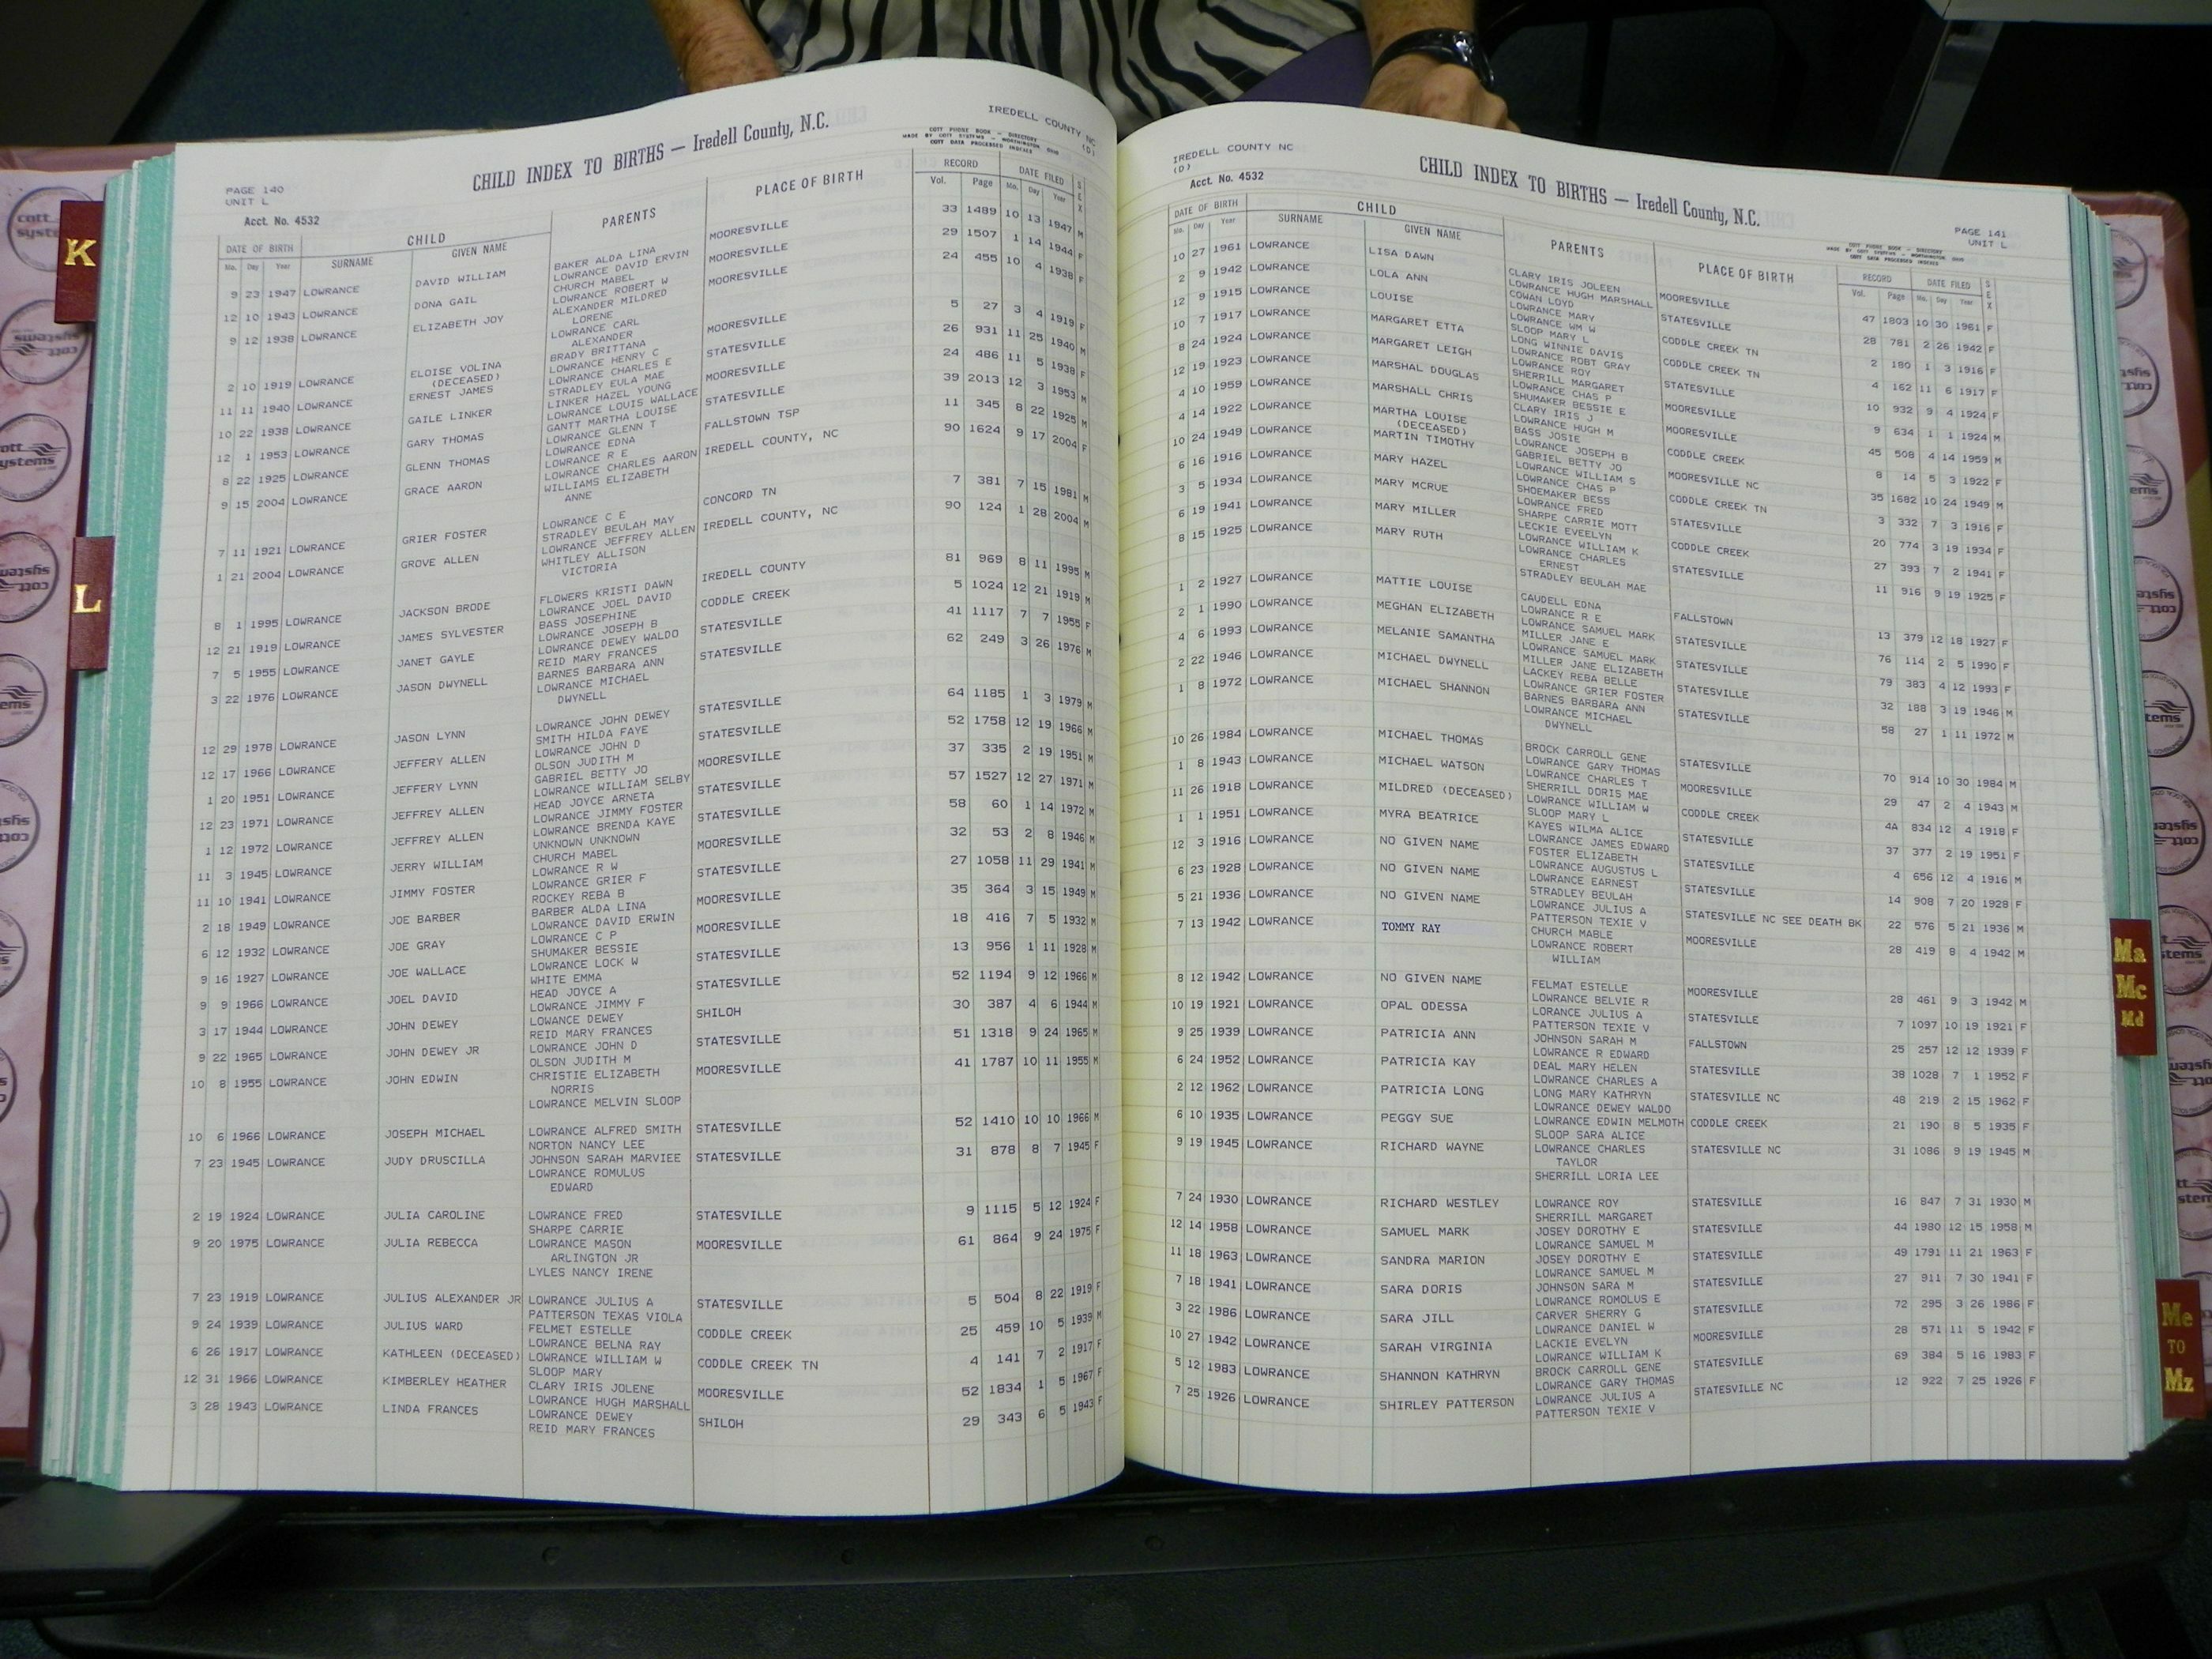 IREDELL COUNTY NC
(D)
PAGE 140
UNIT L
Acct. No. 4532
CHILD INDEX TO BIRTHS — Iredell County, N.C.
COTT PHONE BOOK — DIRECTORY
MADE BY COTT SYSTEMS — WORTHINGTON, OHIO
COTT DATA PROCESSED INDEXES
DATE OF BIRTH CHILD PARENTS PLACE OF BIRTH RECORD DATE FILED SEX
Mo. Day Year SURNAME GIVEN NAME Vol. Page Mo. Day Year
9 23 1947 LOWRANCE DAVID WILLIAM BAKER ALDA LINA MOORESVILLE 33 1489 10 13 1947 M
LOWRANCE DAVID ERVIN
12 10 1943 LOWRANCE DONA GAIL CHURCH MABEL MOORESVILLE 29 1507 1 14 1944 F
LOWRANCE ROBERT W
9 12 1938 LOWRANCE ELIZABETH JOY ALEXANDER MILDRED MOORESVILLE 24 455 10 4 1938 F
LORENE
LOWRANCE CARL
ALEXANDER
2 10 1919 LOWRANCE ELOISE VOLINA BRADY BRITTANA MOORESVILLE 5 27 3 4 1919 F
(DECEASED) LOWRANCE HENRY C
11 11 1940 LOWRANCE ERNEST JAMES LOWRANCE CHARLES E STATESVILLE 26 931 11 25 1940 M
STRADLEY EULA MAE
10 22 1938 LOWRANCE GAILE LINKER LINKER HAZEL YOUNG MOORESVILLE 24 486 11 5 1938 F
LOWRANCE LOUIS WALLACE
12 1 1953 LOWRANCE GARY THOMAS GANTT MARTHA LOUISE STATESVILLE 39 2013 12 3 1953 M
LOWRANCE GLENN T
8 22 1925 LOWRANCE GLENN THOMAS LOWRANCE EDNA FALLSTOWN TSP 11 345 8 22 1925 M
LOWRANCE R E
9 15 2004 LOWRANCE GRACE AARON LOWRANCE CHARLES AARON IREDELL COUNTY, NC 90 1624 9 17 2004 F
WILLIAMS ELIZABETH
ANNE
7 11 1921 LOWRANCE GRIER FOSTER LOWRANCE C E CONCORD TN 7 381 7 15 1981 M
STRADLEY BEULAH MAY
1 21 2004 LOWRANCE GROVE ALLEN LOWRANCE JEFFREY ALLEN IREDELL COUNTY, NC 90 124 1 28 2004 M
WHITLEY ALLISON
VICTORIA
8 1 1995 LOWRANCE JACKSON BRODE FLOWERS KRISTI DAWN IREDELL COUNTY 81 969 8 11 1995 M
LOWRANCE JOEL DAVID
12 21 1919 LOWRANCE JAMES SYLVESTER BASS JOSEPHINE CODDLE CREEK 5 1024 12 21 1919 M
LOWRANCE JOSEPH B
7 5 1955 LOWRANCE JANET GAYLE LOWRANCE DEWEY WALDO STATESVILLE 41 1117 7 7 1955 F
REID MARY FRANCES
3 22 1976 LOWRANCE JASON DWYNELL BARNES BARBARA ANN STATESVILLE 62 249 3 26 1976 M
LOWRANCE MICHAEL
DWYNELL
12 29 1978 LOWRANCE JASON LYNN LOWRANCE JOHN DEWEY STATESVILLE 64 1185 1 3 1979 M
SMITH HILDA FAYE
12 17 1966 LOWRANCE JEFFERY ALLEN LOWRANCE JOHN D STATESVILLE 52 1758 12 19 1966 M
OLSON JUDITH M
1 20 1951 LOWRANCE JEFFERY LYNN GABRIEL BETTY JO MOORESVILLE 37 335 2 19 1951 M
LOWRANCE WILLIAM SELBY
12 23 1971 LOWRANCE JEFFREY ALLEN HEAD JOYCE ARNETA STATESVILLE 57 1527 12 27 1971 M
LOWRANCE JIMMY FOSTER
1 12 1972 LOWRANCE JEFFREY ALLEN LOWRANCE BRENDA KAYE STATESVILLE 58 60 1 14 1972 M
UNKNOWN UNKNOWN
11 3 1945 LOWRANCE JERRY WILLIAM CHURCH MABEL MOORESVILLE 32 53 2 8 1946 M
LOWRANCE R W
11 10 1941 LOWRANCE JIMMY FOSTER LOWRANCE GRIER F STATESVILLE 27 1058 11 29 1941 M
ROCKEY REBA B
2 18 1949 LOWRANCE JOE BARBER BARBER ALDA LINA MOORESVILLE 35 364 3 15 1949 M
LOWRANCE DAVID ERWIN
6 12 1932 LOWRANCE JOE GRAY LOWRANCE C P MOORESVILLE 18 416 7 5 1932 M
SHUMAKER BESSIE
9 16 1927 LOWRANCE JOE WALLACE LOWRANCE LOCK W STATESVILLE 13 956 1 11 1928 M
WHITE EMMA
9 9 1966 LOWRANCE JOEL DAVID HEAD JOYCE A STATESVILLE 52 1194 9 12 1966 M
LOWRANCE JIMMY F
3 17 1944 LOWRANCE JOHN DEWEY LOWANCE DEWEY SHILOH 30 387 4 6 1944 M
REID MARY FRANCES
9 22 1965 LOWRANCE JOHN DEWEY JR LOWRANCE JOHN D STATESVILLE 51 1318 9 24 1965 M
OLSON JUDITH M
10 8 1955 LOWRANCE JOHN EDWIN CHRISTIE ELIZABETH MOORESVILLE 41 1787 10 11 1955 M
NORRIS
LOWRANCE MELVIN SLOOP
10 6 1966 LOWRANCE JOSEPH MICHAEL LOWRANCE ALFRED SMITH STATESVILLE 52 1410 10 10 1966 M
NORTON NANCY LEE
7 23 1945 LOWRANCE JUDY DRUSCILLA JOHNSON SARAH MARVIEE STATESVILLE 31 878 8 7 1945 F
LOWRANCE ROMULUS
EDWARD
2 19 1924 LOWRANCE JULIA CAROLINE LOWRANCE FRED STATESVILLE 9 1115 5 12 1924 F
SHARPE CARRIE
9 20 1975 LOWRANCE JULIA REBECCA LOWRANCE MASON MOORESVILLE 61 864 9 24 1975 F
ARLINGTON JR
LYLES NANCY IRENE
7 23 1919 LOWRANCE JULIUS ALEXANDER JR LOWRANCE JULIUS A STATESVILLE 5 504 8 22 1919 F
PATTERSON TEXAS VIOLA
9 24 1939 LOWRANCE JULIUS WARD FELMET ESTELLE CODDLE CREEK 25 459 10 5 1939 M
LOWRANCE BELNA RAY
6 26 1917 LOWRANCE KATHLEEN (DECEASED) LOWRANCE WILLIAM W CODDLE CREEK TN 4 141 7 2 1917 F
SLOOP MARY
12 31 1966 LOWRANCE KIMBERLEY HEATHER CLARY IRIS JOLENE MOORESVILLE 52 1834 1 5 1967 F
LOWRANCE HUGH MARSHALL
3 28 1943 LOWRANCE LINDA FRANCES LOWRANCE DEWEY SHILOH 29 343 6 5 1943 F
REID MARY FRANCES
IREDELL COUNTY NC
(D)
Acct. No. 4532
CHILD INDEX TO BIRTHS — Iredell County, N.C.
PAGE 141
UNIT L
COTT PHONE BOOK — DIRECTORY
MADE BY COTT SYSTEMS — WORTHINGTON, OHIO
COTT DATA PROCESSED INDEXES
DATE OF BIRTH CHILD PARENTS PLACE OF BIRTH RECORD DATE FILED SEX
Mo. Day Year SURNAME GIVEN NAME Vol. Page Mo. Day Year
10 27 1961 LOWRANCE LISA DAWN CLARY IRIS JOLEEN MOORESVILLE 47 1803 10 30 1961 F
LOWRANCE HUGH MARSHALL
2 9 1942 LOWRANCE LOLA ANN COWAN LOYD STATESVILLE 28 781 2 26 1942 F
LOWRANCE MARY
12 9 1915 LOWRANCE LOUISE LOWRANCE WM W CODDLE CREEK TN 2 180 1 3 1916 F
SLOOP MARY L
10 7 1917 LOWRANCE MARGARET ETTA LONG WINNIE DAVIS CODDLE CREEK TN 4 162 11 6 1917 F
LOWRANCE ROBT GRAY
8 24 1924 LOWRANCE MARGARET LEIGH LOWRANCE ROY STATESVILLE 10 932 9 4 1924 F
SHERRILL MARGARET
12 19 1923 LOWRANCE MARSHAL DOUGLAS LOWRANCE CHAS P MOORESVILLE 9 634 1 1 1924 M
SHUMAKER BESSIE E
4 10 1959 LOWRANCE MARSHALL CHRIS CLARY IRIS J MOORESVILLE 45 508 4 14 1959 M
LOWRANCE HUGH M
4 14 1922 LOWRANCE MARTHA LOUISE BASS JOSIE CODDLE CREEK 8 14 5 3 1922 F
(DECEASED) LOWRANCE JOSEPH B
10 24 1949 LOWRANCE MARTIN TIMOTHY GABRIEL BETTY JO MOORESVILLE NC 35 1682 10 24 1949 M
LOWRANCE WILLIAM S
6 16 1916 LOWRANCE MARY HAZEL LOWRANCE CHAS P CODDLE CREEK TN 3 332 7 3 1916 F
SHOEMAKER BESS
3 5 1934 LOWRANCE MARY MCRUE LOWRANCE FRED STATESVILLE 20 774 3 19 1934 F
SHARPE CARRIE MOTT
6 19 1941 LOWRANCE MARY MILLER LECKIE EVEELYN CODDLE CREEK 27 393 7 2 1941 F
LOWRANCE WILLIAM K
8 15 1925 LOWRANCE MARY RUTH LOWRANCE CHARLES STATESVILLE 11 916 9 19 1925 F
ERNEST
STRADLEY BEULAH MAE
1 2 1927 LOWRANCE MATTIE LOUISE CAUDELL EDNA FALLSTOWN 13 379 12 18 1927 F
LOWRANCE R E
2 1 1990 LOWRANCE MEGHAN ELIZABETH LOWRANCE SAMUEL MARK STATESVILLE 76 114 2 5 1990 F
MILLER JANE E
4 6 1993 LOWRANCE MELANIE SAMANTHA LOWRANCE SAMUEL MARK STATESVILLE 79 383 4 12 1993 F
MILLER JANE ELIZABETH
2 22 1946 LOWRANCE MICHAEL DWYNELL LACKEY REBA BELLE STATESVILLE 32 188 3 19 1946 M
LOWRANCE GRIER FOSTER
1 8 1972 LOWRANCE MICHAEL SHANNON BARNES BARBARA ANN STATESVILLE 58 27 1 11 1972 M
LOWRANCE MICHAEL
DWYNELL
10 26 1984 LOWRANCE MICHAEL THOMAS BROCK CARROLL GENE STATESVILLE 70 914 10 30 1984 M
LOWRANCE GARY THOMAS
1 8 1943 LOWRANCE MICHAEL WATSON LOWRANCE CHARLES T MOORESVILLE 29 47 2 4 1943 M
SHERRILL DORIS MAE
11 26 1918 LOWRANCE MILDRED (DECEASED) LOWRANCE WILLIAM W CODDLE CREEK 4A 834 12 4 1918 F
SLOOP MARY L
1 1 1951 LOWRANCE MYRA BEATRICE KAYES WILMA ALICE STATESVILLE 37 377 2 19 1951 F
LOWRANCE JAMES EDWARD
12 3 1916 LOWRANCE NO GIVEN NAME FOSTER ELIZABETH STATESVILLE 4 656 12 4 1916 M
LOWRANCE AUGUSTUS L
6 23 1928 LOWRANCE NO GIVEN NAME LOWRANCE EARNEST STATESVILLE 14 908 7 20 1928 F
STRADLEY BEULAH
5 21 1936 LOWRANCE NO GIVEN NAME LOWRANCE JULIUS A STATESVILLE NC SEE DEATH BK 22 576 5 21 1936 M
PATTERSON TEXIE V
7 13 1942 LOWRANCE TOMMY RAY CHURCH MABLE MOORESVILLE 28 419 8 4 1942 M
LOWRANCE ROBERT
WILLIAM
8 12 1942 LOWRANCE NO GIVEN NAME FELMAT ESTELLE MOORESVILLE 28 461 9 3 1942 M
LOWRANCE BELVIE R
10 19 1921 LOWRANCE OPAL ODESSA LORANCE JULIUS A STATESVILLE 7 1097 10 19 1921 F
PATTERSON TEXIE V
9 25 1939 LOWRANCE PATRICIA ANN JOHNSON SARAH M FALLSTOWN 25 257 12 12 1939 F
LOWRANCE R EDWARD
6 24 1952 LOWRANCE PATRICIA KAY DEAL MARY HELEN STATESVILLE 38 1028 7 1 1952 F
LOWRANCE CHARLES A
2 12 1962 LOWRANCE PATRICIA LONG LONG MARY KATHRYN STATESVILLE NC 48 219 2 15 1962 F
LOWRANCE DEWEY WALDO
6 10 1935 LOWRANCE PEGGY SUE LOWRANCE EDWIN MELMOTH CODDLE CREEK 21 190 8 5 1935 F
SLOOP SARA ALICE
9 19 1945 LOWRANCE RICHARD WAYNE LOWRANCE CHARLES STATESVILLE NC 31 1086 9 19 1945 M
TAYLOR
SHERRILL LORIA LEE
7 24 1930 LOWRANCE RICHARD WESTLEY LOWRANCE ROY STATESVILLE 16 847 7 31 1930 M
SHERRILL MARGARET
12 14 1958 LOWRANCE SAMUEL MARK JOSEY DOROTHY E STATESVILLE 44 1980 12 15 1958 M
LOWRANCE SAMUEL M
11 18 1963 LOWRANCE SANDRA MARION JOSEY DOROTHY E STATESVILLE 49 1791 11 21 1963 F
LOWRANCE SAMUEL M
7 18 1941 LOWRANCE SARA DORIS JOHNSON SARA M STATESVILLE 27 911 7 30 1941 F
LOWRANCE ROMOLUS E
3 22 1986 LOWRANCE SARA JILL CARVER SHERRY G STATESVILLE 72 295 3 26 1986 F
LOWRANCE DANIEL W
10 27 1942 LOWRANCE SARAH VIRGINIA LACKIE EVELYN MOORESVILLE 28 571 11 5 1942 F
LOWRANCE WILLIAM K
5 12 1983 LOWRANCE SHANNON KATHRYN BROCK CARROLL GENE STATESVILLE 69 384 5 16 1983 F
LOWRANCE GARY THOMAS
7 25 1926 LOWRANCE SHIRLEY PATTERSON LOWRANCE JULIUS A STATESVILLE NC 12 922 7 25 1926 F
PATTERSON TEXIE V
K
L
Ma
Mc
Md
Me
TO
Mz
cott
systems